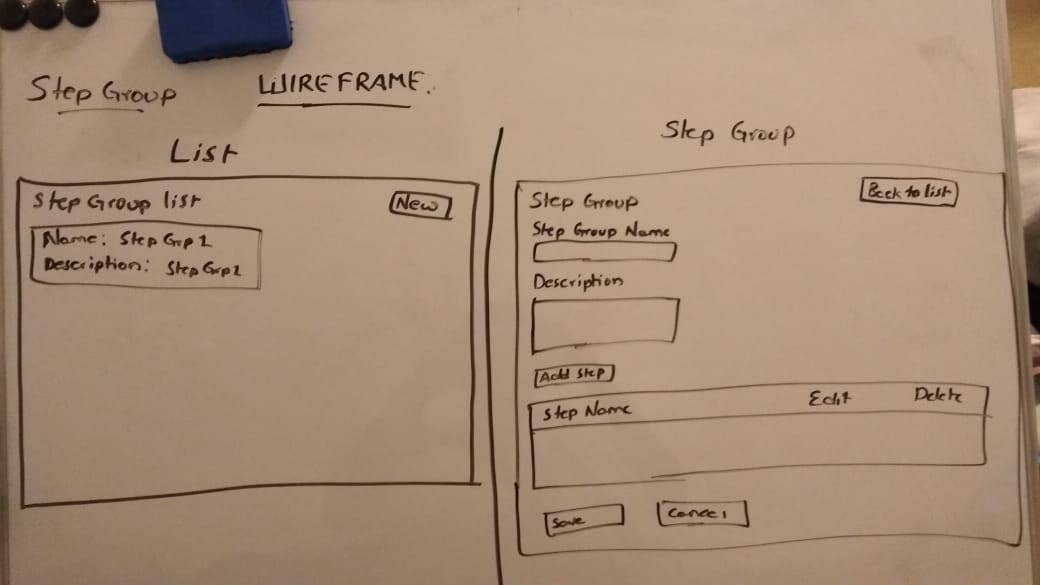 Step Group
WIREFRAME.
List
Step Group list
New
Name: Step Grp1
Description: Step Grp1
Step Group
Step Group
Back to list
Step Group Name
Description
Add Step
Step Name Edit Delete
Save
Cancel